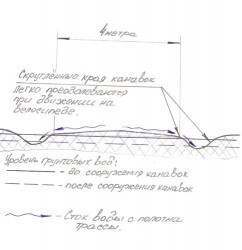 4 метра
Скруглённые края канавок
Легко преодолеваются
при движении на
велосипеде.
Уровень грунтовых вод:
- до сооружения канавок
- после сооружения канавок
- Сток воды с полотна
трассы.